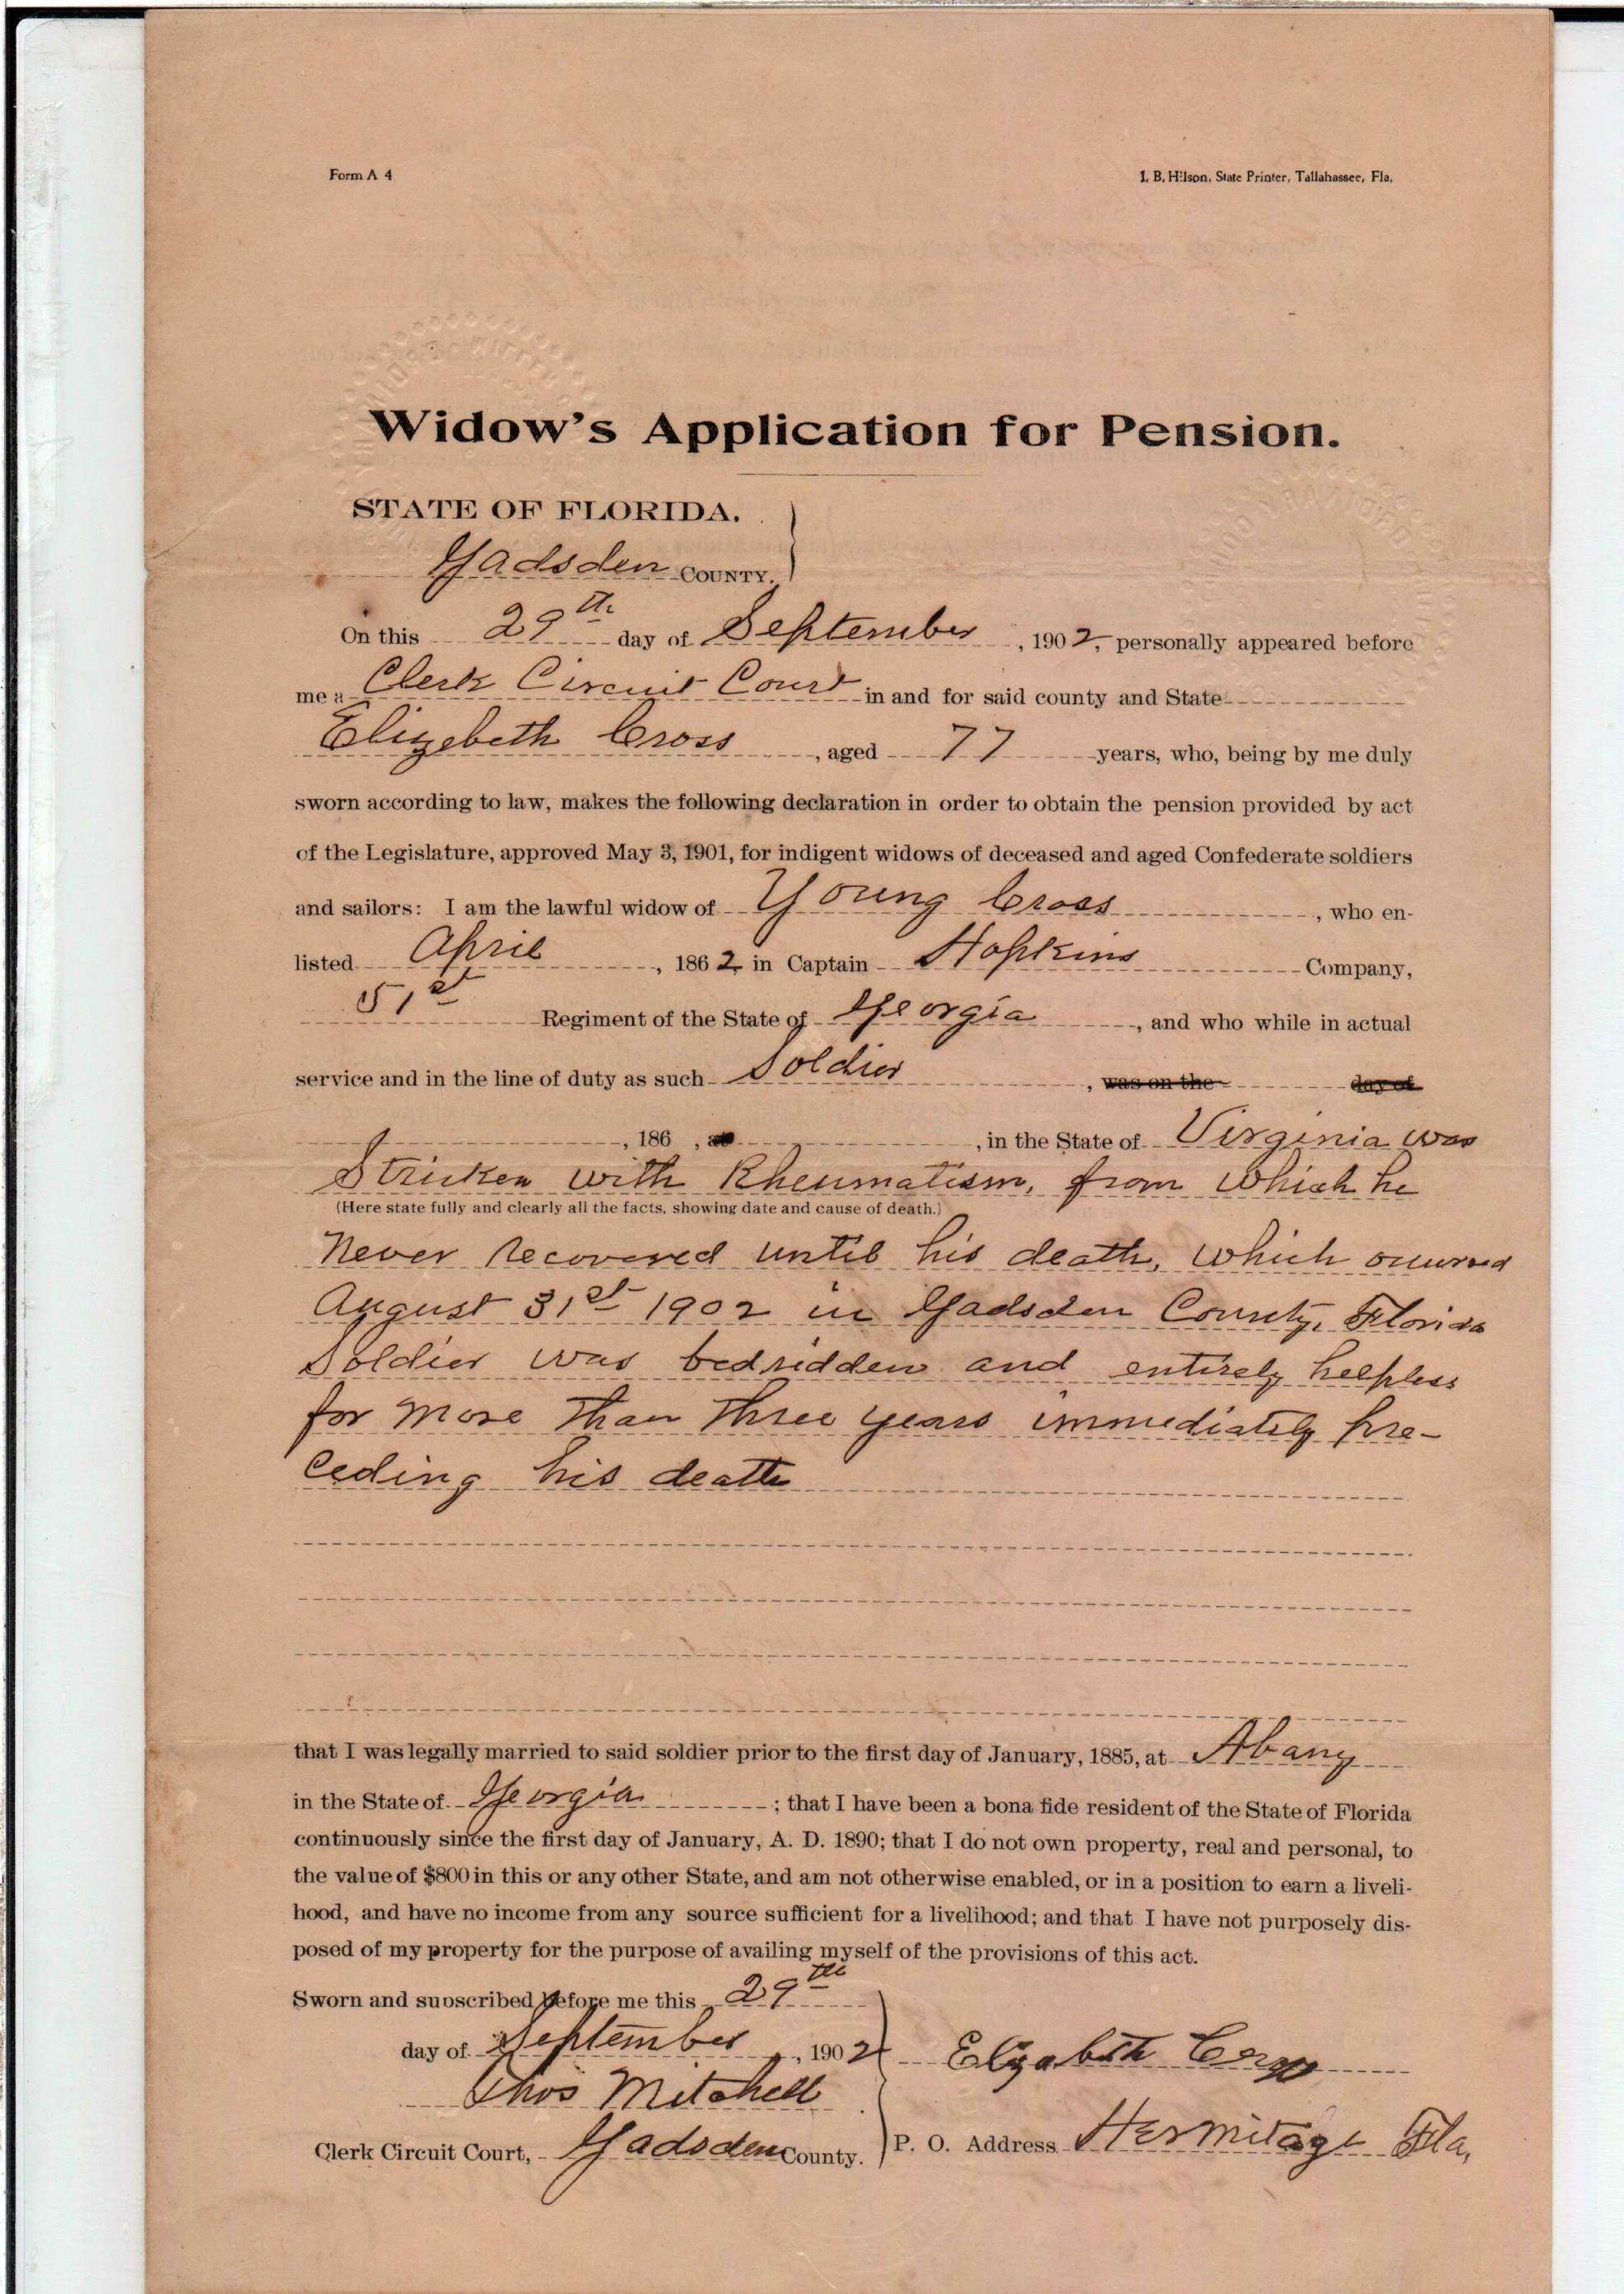 Form A 4
I. B. Hilson, State Printer, Tallahassee, Fla,
Widow's Application for Pension.
STATE OF FLORIDA.
Gadsden COUNTY.
On this 29th day of September, 1902, personally appeared before
me a Clerk Circuit Court in and for said county and State
Elizebeth Cross, aged 77 years, who, being by me duly
sworn according to law, makes the following declaration in order to obtain the pension provided by act
of the Legislature, approved May 3, 1901, for indigent widows of deceased and aged Confederate soldiers
and sailors: I am the lawful widow of Young Cross, who en-
listed April, 1862 in Captain Hopkins Company,
51st Regiment of the State of Georgia, and who while in actual
service and in the line of duty as such Soldier, was on the day of
, 186 , at , in the State of Virginia was
Stricken with Rheumatism, from which he
(Here state fully and clearly all the facts, showing date and cause of death.)
Never recovered until his death, which occurred
August 31st 1902 in Gadsden County, Florida
Soldier was bedridden and entirely helpless
for more than three years immediately pre-
ceding his death
that I was legally married to said soldier prior to the first day of January, 1885, at Abany
in the State of Georgia; that I have been a bona fide resident of the State of Florida
continuously since the first day of January, A. D. 1890; that I do not own property, real and personal, to
the value of $800 in this or any other State, and am not otherwise enabled, or in a position to earn a liveli-
hood, and have no income from any source sufficient for a livelihood; and that I have not purposely dis-
posed of my property for the purpose of availing myself of the provisions of this act.
Sworn and subscribed before me this 29th
day of September, 1902 Elizabeth Cross
Thos Mitchell
Clerk Circuit Court, Gadsden County. P. O. Address Hermitage Fla,